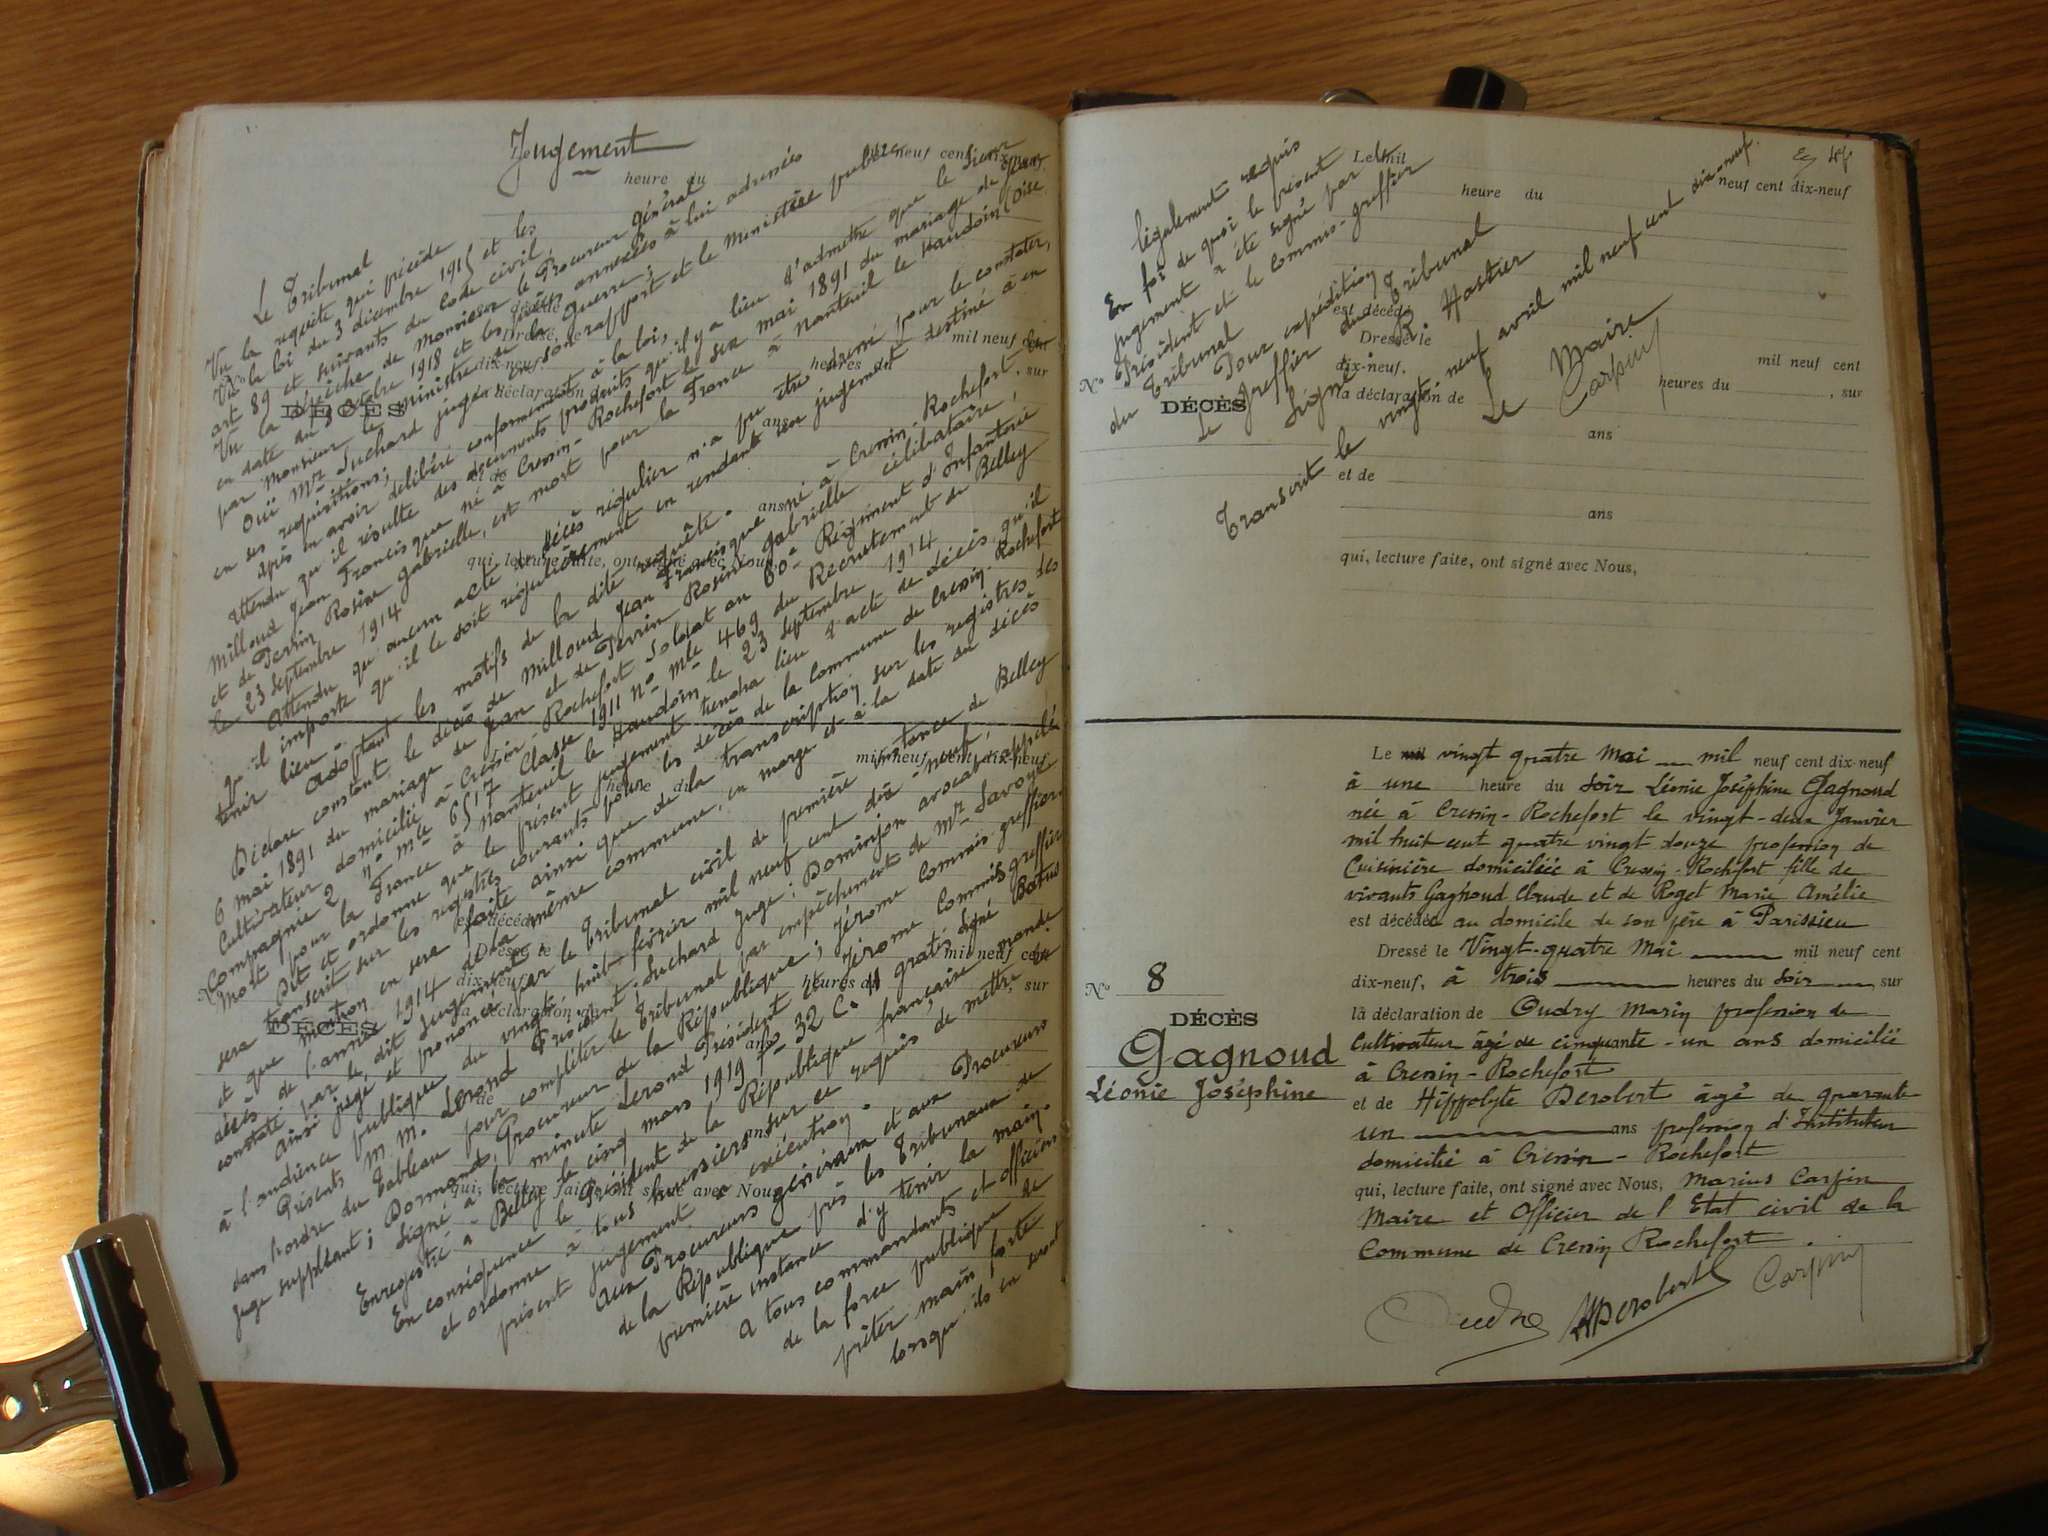 Jugement
Le Tribunal
Vu la requête qui précède
Vu la loi du 3 décembre 1915 et les
art 89 et suivants du code civil
Vu la dépêche de Monsieur le Procureur général
en date du octobre 1918 et les pièces annexées à lui adressées
par Monsieur le Ministre de la Guerre;
Ouï Mr Suchard juge en son rapport et le Ministère public
en ses requisitions;
après en avoir délibéré conformément à la loi,
Attendu qu'il résulte des documents produits qu'il y a lieu d'admettre que le Sieur
Milloud Jean Francisque né à Cressin-Rochefort le six mai 1891 du mariage de Jean
et de Perrin Rosine Gabrielle, est mort pour la France à Nanteuil le Haudoin (Oise
le 23 septembre 1914
Attendu qu'aucun acte de décès régulier n'a pu être dressé pour le constater,
qu'il importe qu'il le soit régulièrement en rendant un jugement destiné à en
tenir lieu.
Adoptant les motifs de la dite requête.
Déclare constant le décès de Milloud Jean Francisque né à Cressin-Rochefort le
6 mai 1891 du mariage de Jean et de Perrin Rosine Gabrielle célibataire,
Cultivateur domicilié à Cressin-Rochefort Soldat au 60e Régiment d'Infanterie
Compagnie 2 no mle 6517 Classe 1911 no mle 469 du Recrutement de Belley
Mort pour la France à Nanteuil le Haudoin le 23 septembre 1914
Dit et ordonne que le présent jugement tiendra lieu d'acte de décès, qu'il
sera transcrit sur les registres courants pour les décès de la commune de Cressin-Rochefort
et que mention en sera faite ainsi que de la transcription sur les registres des
décès de l'année 1914 de la même commune, en marge et à la date du décès
constaté par le dit jugement.
Ainsi jugé et prononcé par le Tribunal civil de première instance de Belley
à l'audience publique du vingt-huit février mil neuf cent dix-neuf,
Présents M.M. Lerond Président; Suchard Juge; Dominjon avocat appelé
dans l'ordre du tableau pour compléter le Tribunal par empêchement de Mr Savoye
Juge suppléant; Dormand, Procureur de la République; Jérome Commis greffier.
Signé à la minute Lerond Président et Jérome Commis greffier
Enregistré à Belley le cinq mars 1919 fo 32 Ce 11 gratis signé Batus
En conséquence le Président de la République française mande
et ordonne à tous huissiers sur ce requis de mettre le
présent jugement à exécution.
Aux Procureurs généraux et aux Procureurs
de la République près les Tribunaux de
première instance d'y tenir la main.
A tous commandants et officiers
de la force publique de
prêter main forte
lorsqu'ils en seront
légalement requis
En foi de quoi le présent
jugement a été signé par le
Président et le Commis-greffier
du Tribunal
Pour expédition
Le Greffier du Tribunal
Signé R Hastier
Transcrit le vingt neuf avril mil neuf cent dix neuf.
Le Maire
Carpin
No 8
DÉCÈS
Gagnoud
Léonie Joséphine
Le vingt quatre Mai mil neuf cent dix-neuf
à une heure du soir Léonie Joséphine Gagnoud
née à Cressin-Rochefort le vingt-deux Janvier
mil huit cent quatre vingt douze profession de
Cuisinière domiciliée à Cressin-Rochefort fille de
vivants Gagnoud Claude et de Roget Marie Amélie
est décédée au domicile de son père à Parissieu
Dressé le Vingt-quatre Mai mil neuf cent
dix-neuf, à trois heures du soir sur
la déclaration de Oudry Marin profession de
Cultivateur âgé de cinquante-un ans domicilié
à Cressin-Rochefort
et de Hippolyte Derobert âgé de quarante
un ans profession d'Instituteur
domicilié à Cressin-Rochefort
qui, lecture faite, ont signé avec Nous, Marius Carpin
Maire et Officier de l'Etat civil de la
Commune de Cressin Rochefort.
Oudry HDerobert Carpin